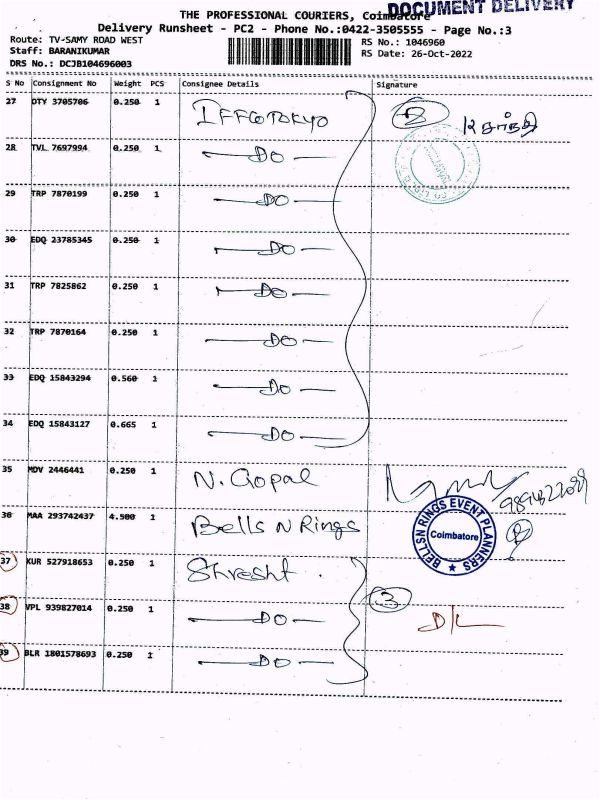 DOCUMENT DELIVERY
THE PROFESSIONAL COURIERS, Coimbatore
Delivery Runsheet - PC2 - Phone No.:0422-3505555 - Page No.:3
Route: TV-SAMY ROAD WEST
RS No.: 1046960
Staff: BARANIKUMAR
RS Date: 26-Oct-2022
DRS No.: DCJB104696003
S No Consignment No Weight PCS Consignee Details Signature
27 DTY 3705706 0.250 1 IFFCO TOKYO
28 TVL 7697994 0.250 1 DO
29 TRP 7870199 0.250 1 DO
30 EDQ 23785345 0.250 1 DO
31 TRP 7825862 0.250 1 DO
32 TRP 7870164 0.250 1 DO
33 EDQ 15843294 0.560 1 DO
34 EDQ 15843127 0.665 1 DO
35 MDV 2446441 0.250 1 N. Gopal
36 MAA 293742437 4.500 1 Bells N Rings
BELLSN RINGS EVENT PLANNERS
Coimbatore
37 KUR 527918653 0.250 1 Shresht.
38 VPL 939827014 0.250 1 DO 3 D/L
39 BLR 1801578693 0.250 1 DO